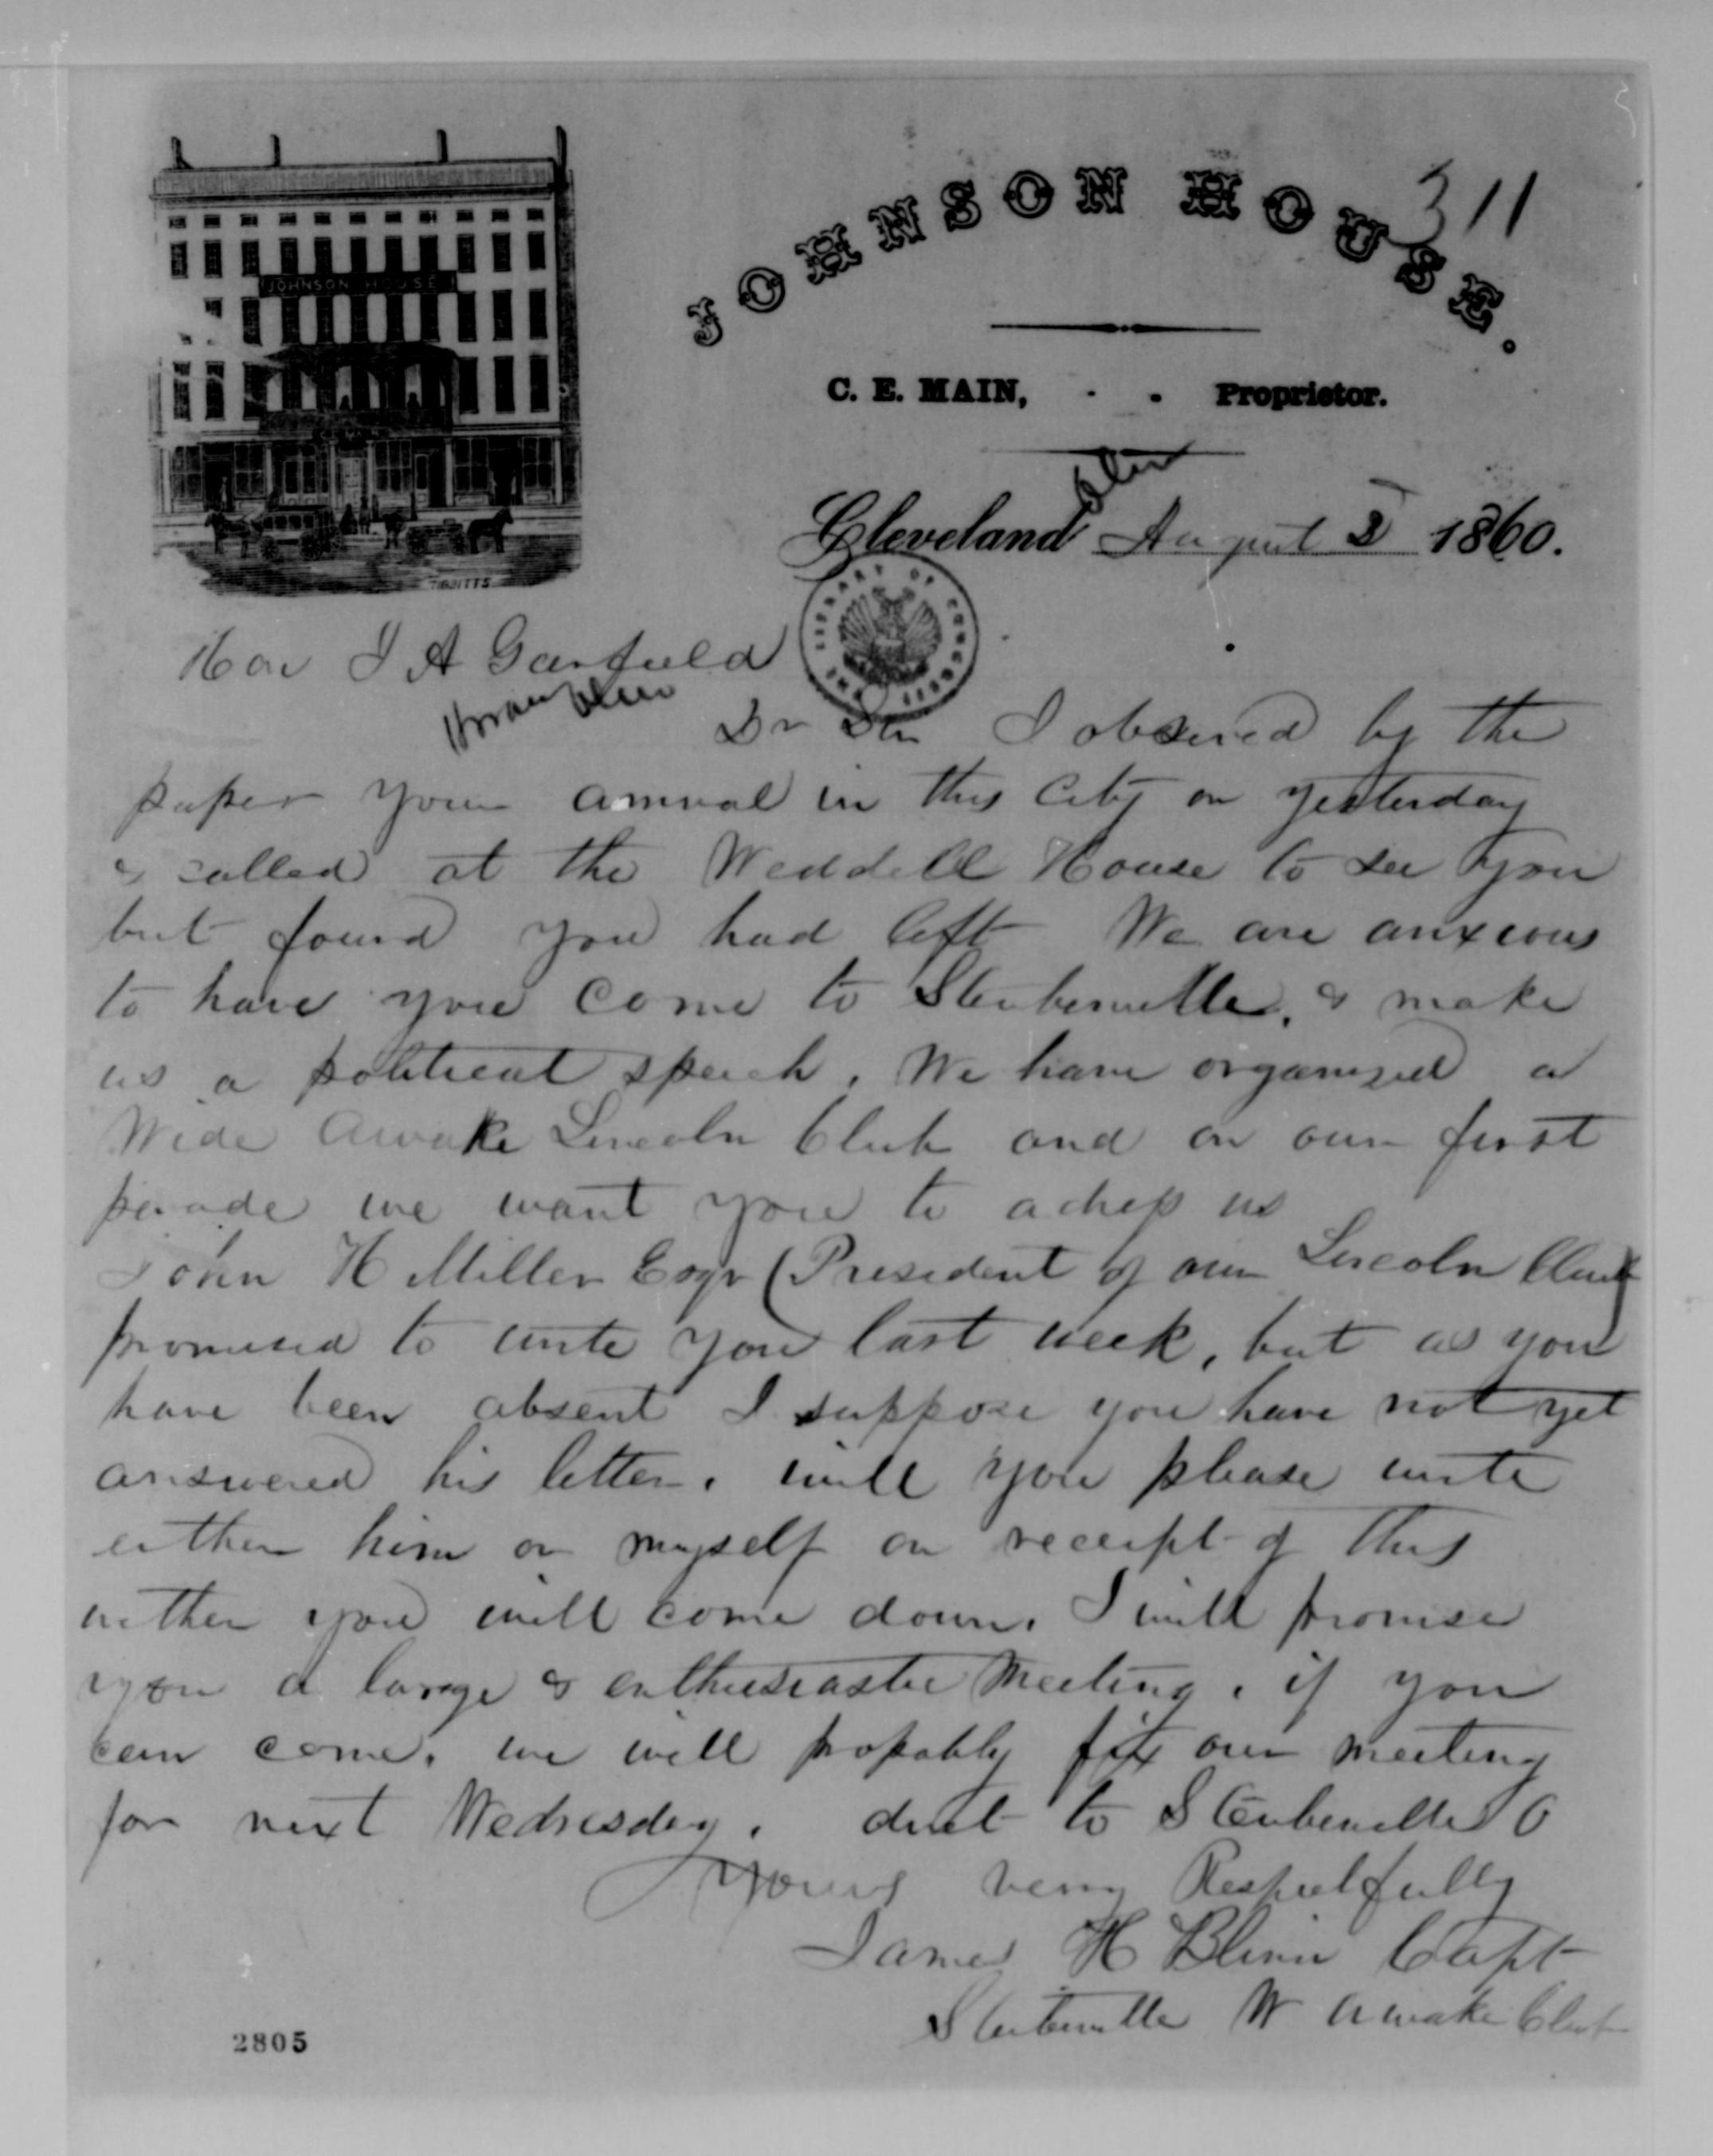 JOHNSON HOUSE.
311
JOHNSON HOUSE
C. E. MAIN, - - Proprietor.
Cleveland August 3 1860.
TIBBITTS
LIBRARY OF CONGRESS
Hon J A Garfield
Hiram Ohio
Dr Sir I observed by the
paper your arrival in this City on yesterday
& called at the Weddell House to see you
but found you had left We are anxious
to have you come to Steubenville, & make
us a political speech. We have organized a
Wide Awake Lincoln Club and on our first
parade we want you to adress us
John H Miller Esqr (President of our Lincoln Club)
promised to write you last week, but as you
have been absent I suppose you have not yet
answered his letter. will you please write
either him or myself on receipt of this
wether you will come down. I will promise
you a large & enthusiastic Meeting. if you
can come. we will propably fix our meeting
for next Wednesday. direct to Steubenville O
Yours very Respectfully
James H Blinn Capt
Steubenville W Awake Club
2805